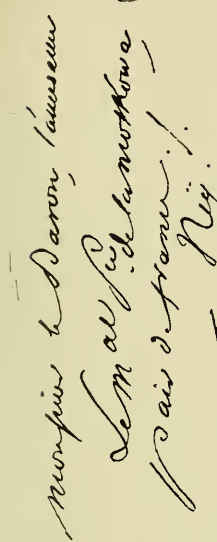 monsieur le Baron, l'assurance
Le Mal Pce de la moskowa
pair de france ./.
Ney.